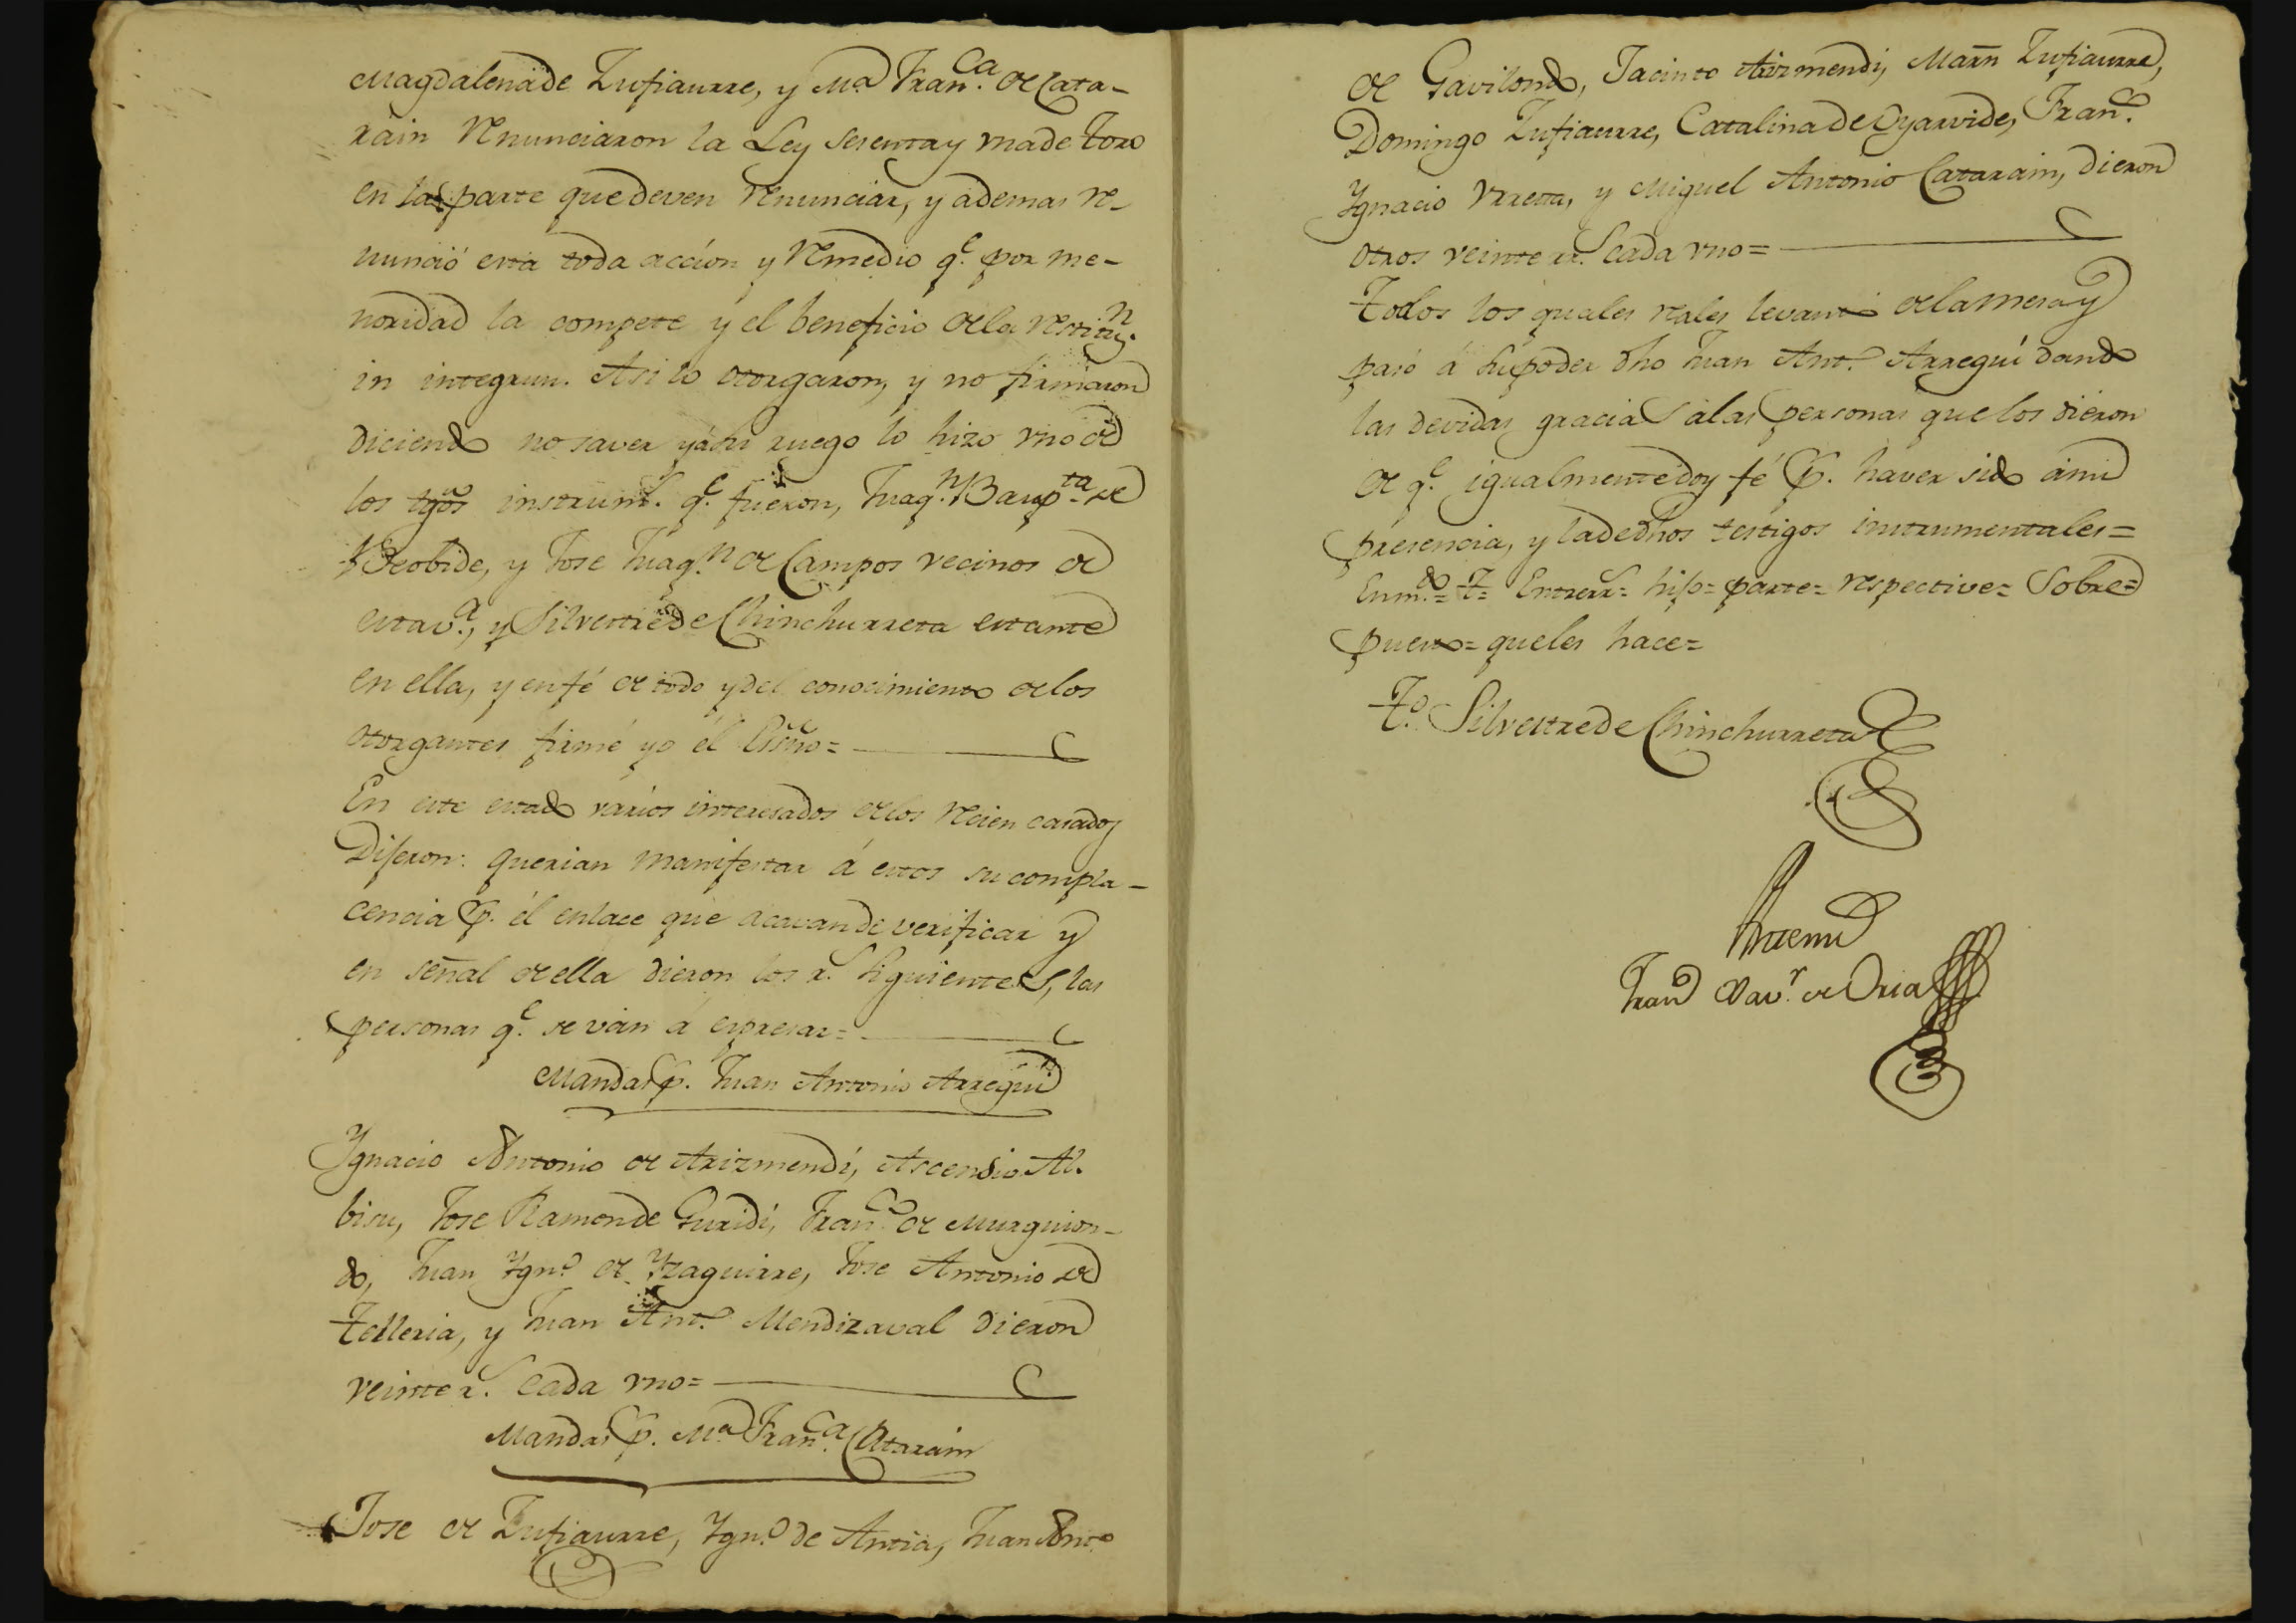 Magdalena de Zufiaurre, y M.a Fran.ca de Cata-
rain renunciaron la Ley sesenta y vna de toro
en la parte que deven renunciar, y ademas re-
nunció esta toda acción y remedio q.e por me-
noridad la compete y el beneficio de la restitu.n
in integrum. Asi lo otorgaron, y no firmaron
diciendo no saver y á su ruego lo hizo vno de
los tgos instrum.s q.e fueron, Juaq.n Baup.ta de
Beobide, y Jose Juaq.n de Campos vecinos de
esta v.a, y Silvestre de Chinchurreta estante
en ella, y en fé de todo y del conocimiento de los
otorgantes firmé yo él Essno=
En este estado varios interesados de los recien casados
Dijeron: querian manifestar á estos su compla-
cencia p. él enlace que acavan de verificar y
en señal de ella dieron los r.s siguientes, las
personas q.e se ván á espresar=
Mandas p. Juan Antonio Arregui
Ygnacio Antonio de Arizmendi, Ascensio Al-
bisu, Jose Ramon de Guridi, Fran.co de Murguion-
do, Juan Ygn.o de Yzaguirre, Jose Antonio de
Telleria, y Juan Ant.o Mendizaval dieron
veinte r.s cada vno=
Mandas p. M.a Fran.ca Catarain
Jose de Zufiaurre, Ygn.o de Antia, Juan Ant.o
de Gavilondo, Jacinto Arizmendi, Marñ Zufiaurre,
Domingo Zufiaurre, Catalina de Oyarvide, Fran.co
Ygnacio Vrreta, y Miguel Antonio Catarain, dieron
otros veinte rr.s cada vno=
Todos los quales reales levantó de la mesa y
pasó á su poder dho Juan Ant.o Arregui dando
las devidas gracias á las personas que los dieron
de q.e igualmente doy fé p. haver sido á mi
presencia, y la de dhos testigos instrumentales=
Enm.do= t= Entrerr.s= hijo= parte= respective= Sobre=
puesto= que les hace=
T.o Silvestre de Chinchurreta
Antemi
Fran.co Xav.r de Oria